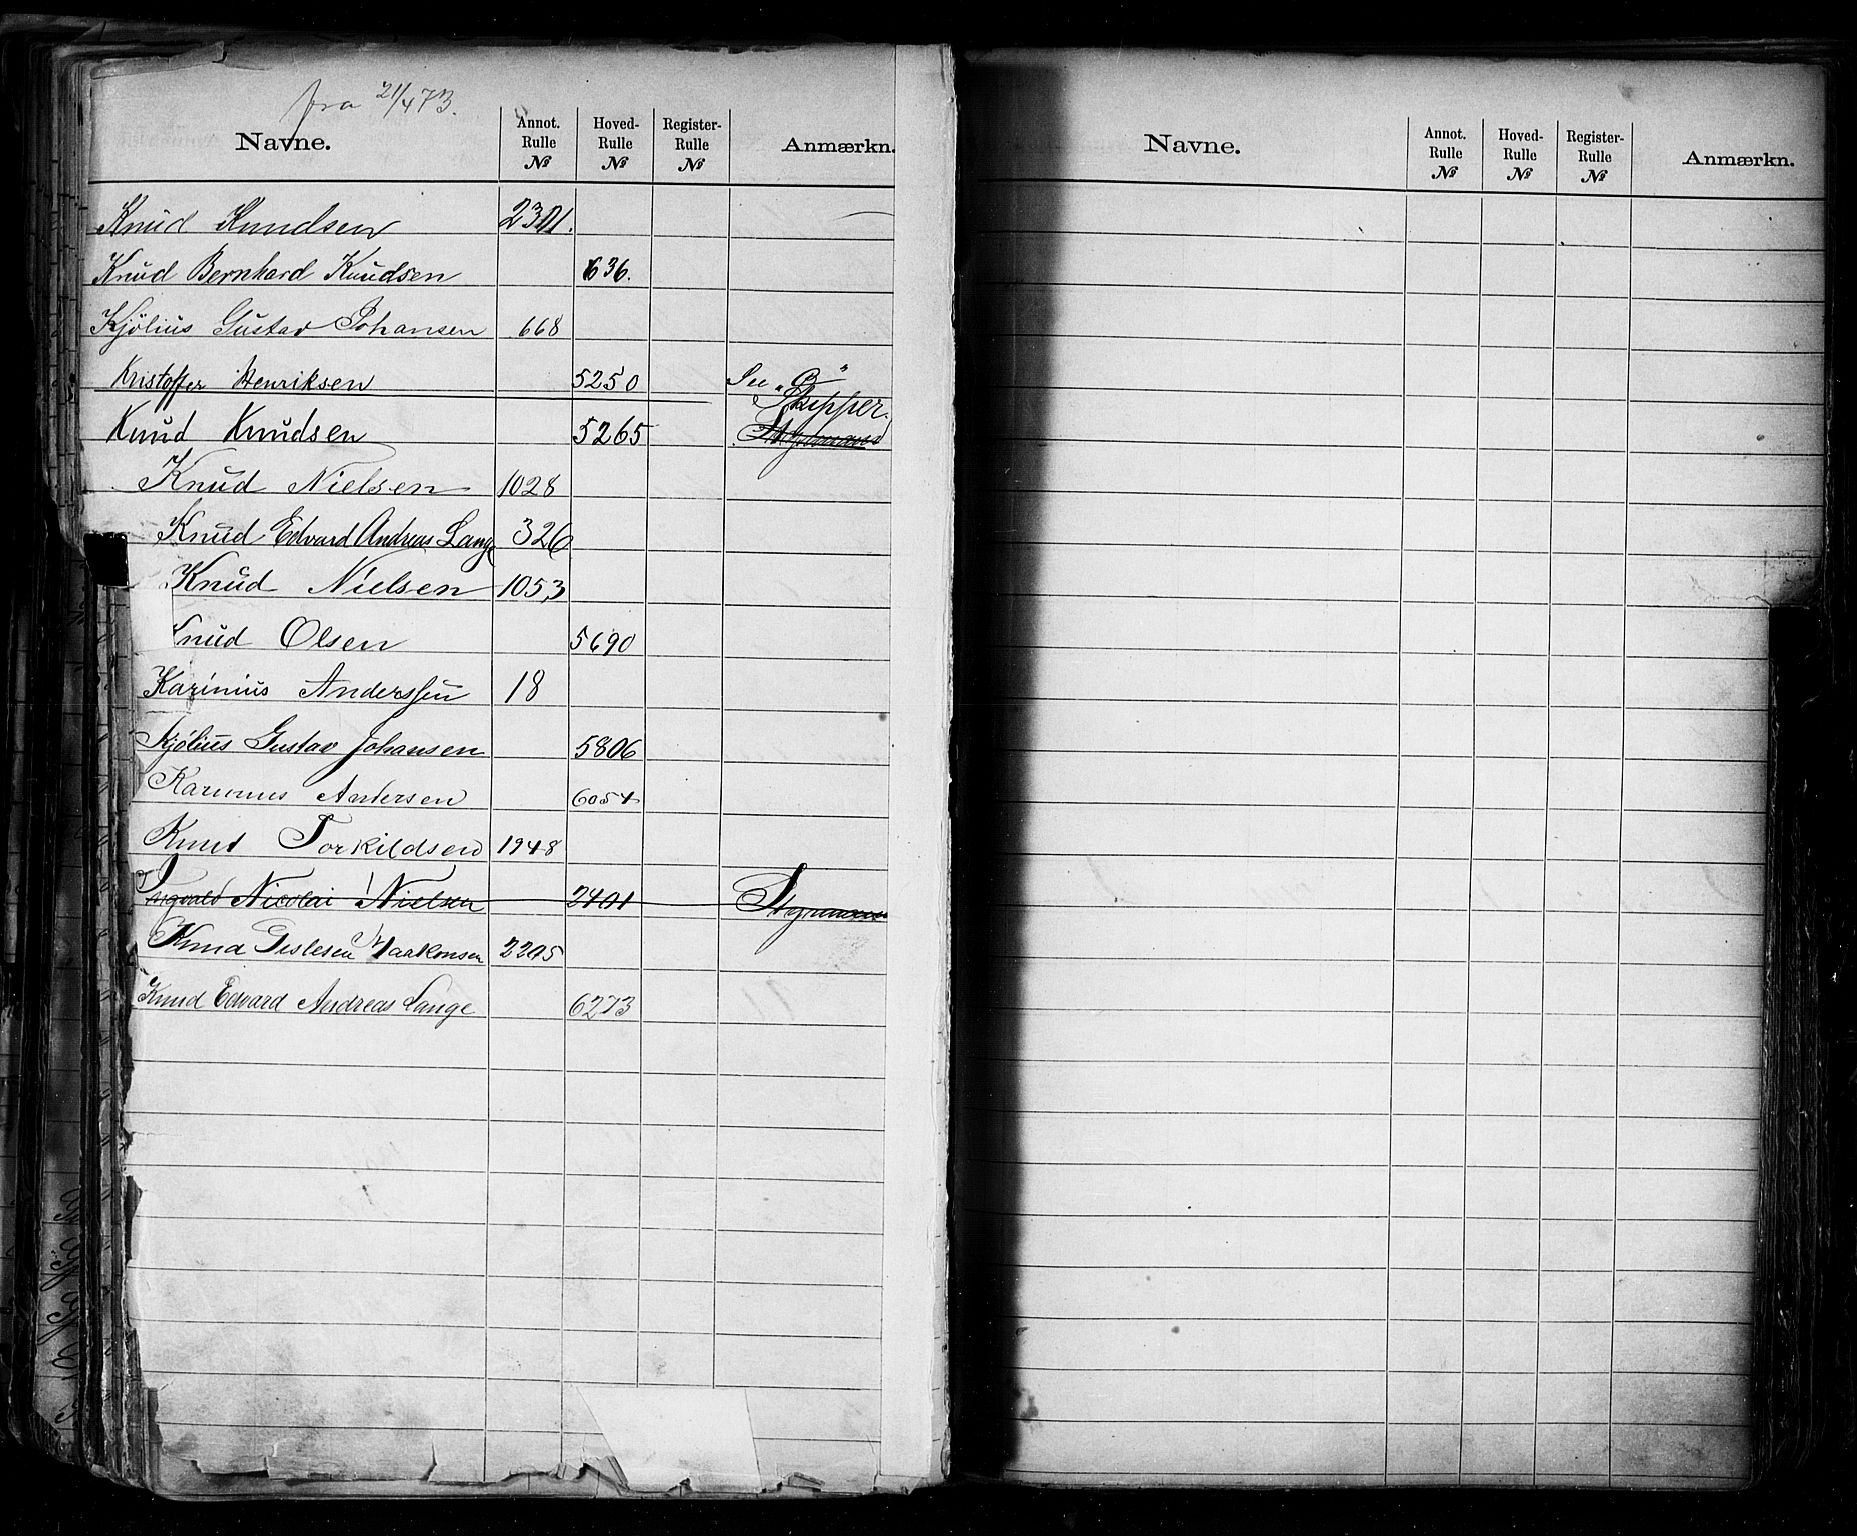 fra 21/4 73.
Navne. Annot. Rulle № Hoved-Rulle № Register-Rulle № Anmærkn.
Knud Knudsen 2301.
Knud Bernhard Knudsen 636.
Kjölius Gustav Johansen 668
Kristoffer Henriksen 5250 See "C"
Skipper.
Knud Knudsen 5265 Styrmand
Knud Nielsen 1028
Knud Edvard Andreas Lange 326
Knud Nielsen 1053
Knud Olsen 5690
Karinius Anderssen 18
Kjølius Gustav Johansen 5806
Karinius Andersen 6054
Knut Torkildsen 1948
Ingvald Nicolai Nielsen 2401 Styrmand
Knud Gislesen Haakonsen 2205
Knud Edvard Andreas Lange 6273
Navne. Annot. Rulle № Hoved-Rulle № Register-Rulle № Anmærkn.